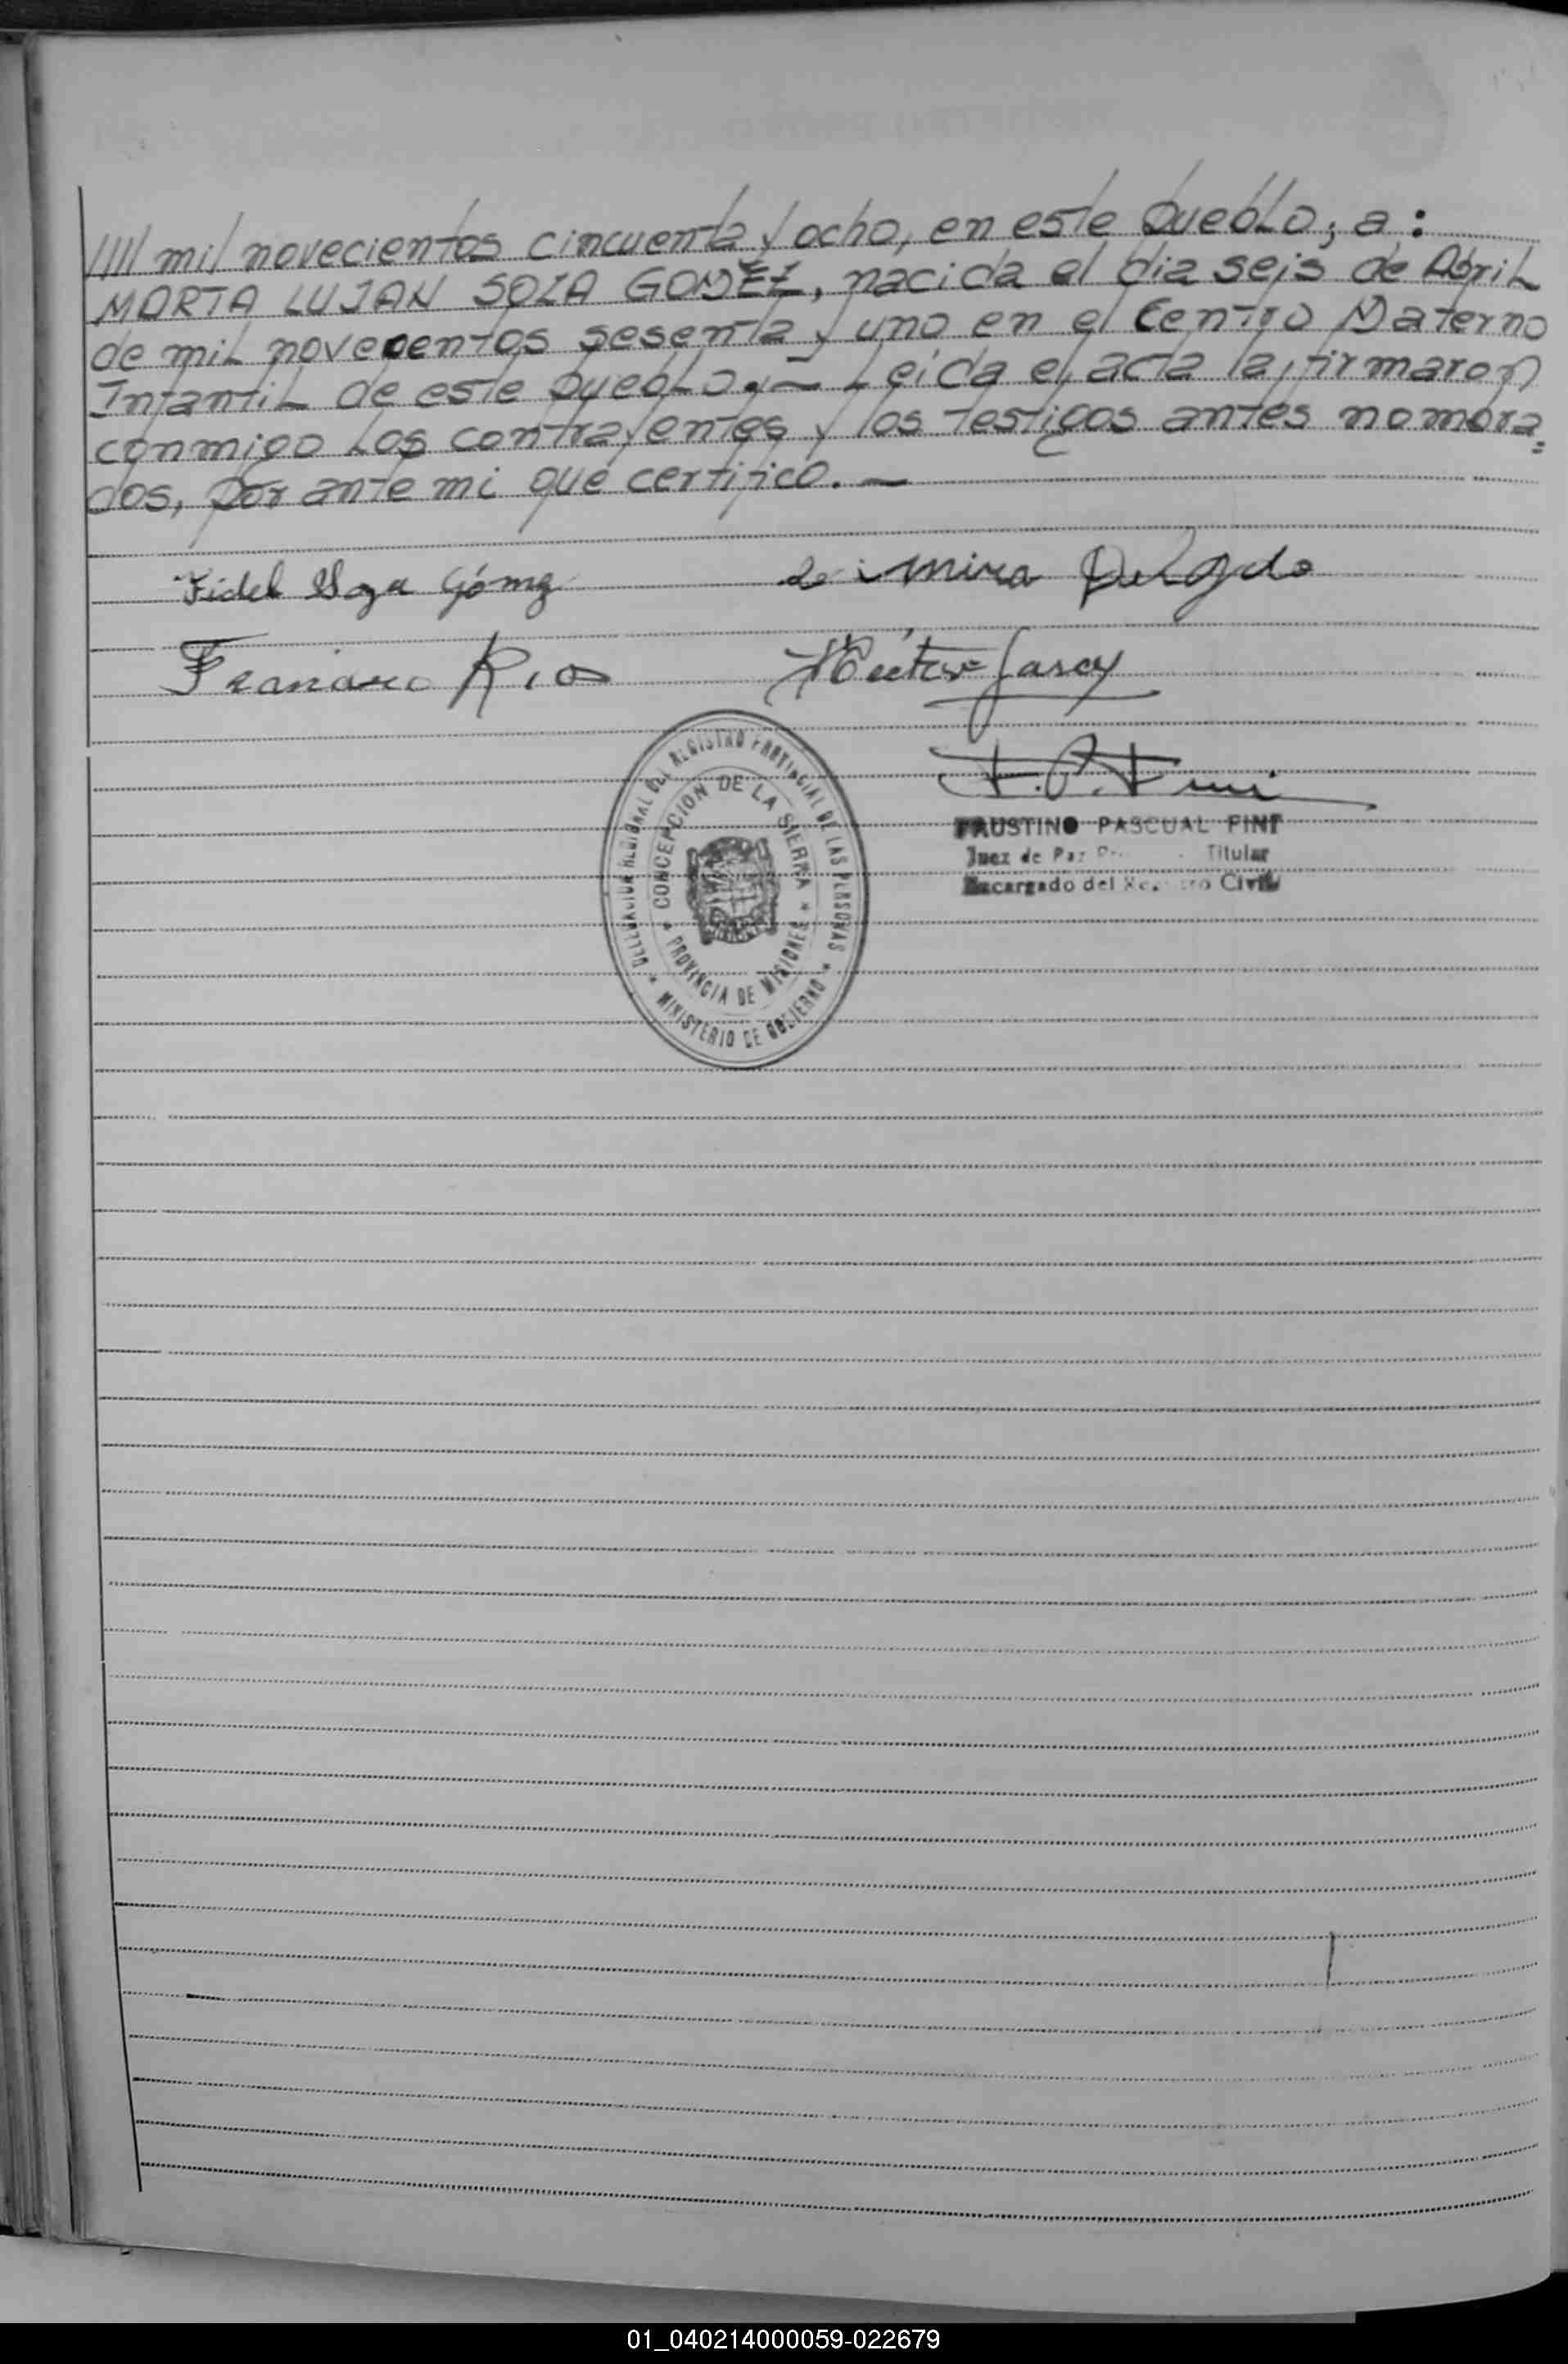 //// mil novecientos cincuenta y ocho, en este pueblo; a:
MARTA LUJAN SOZA GOMEZ, nacida el dia seis de Abril
de mil novecentos sesenta y uno en el Centro Materno
Infantil de este pueblo.- Leída el acta la firmaron
conmigo los contrayentes y los testigos antes nombra=
dos, por ante mi que certifico.-
Fidel Soza Gómez
Delgado
Francisco Rios
Héctor
F. P. Fini
DELEGACION REGIONAL DEL REGISTRO PROVINCIAL DE LAS PERSONAS
* MINISTERIO DE GOBIERNO *
CONCEPCION DE LA SIERRA
* PROVINCIA DE MISIONES *
FAUSTINO PASCUAL FINI
Juez de Paz Titular
Encargado del Registro Civil
01_040214000059-022679